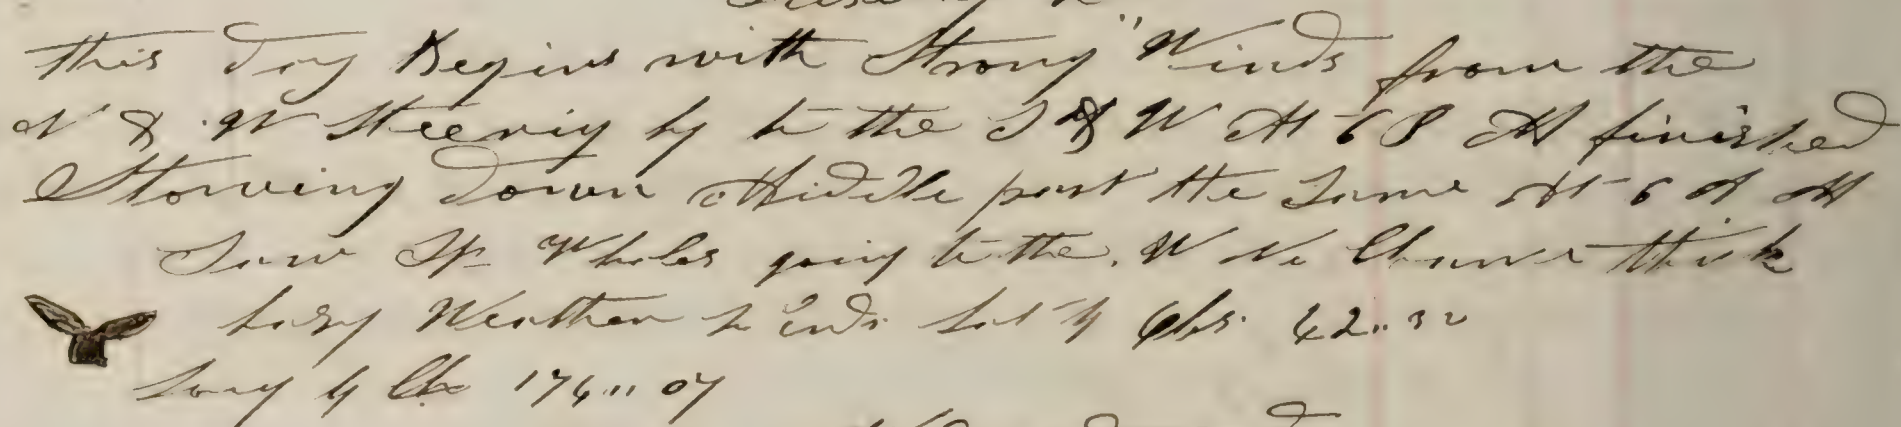 this Day Begins with Strong Winds from the
N & W Steering by to the S & W At 6 P M finished
Stowing down Middle part the Same At 6 A M
Saw Sp Whales going to the W No Chance thick
hazy Weather So Ends Lat by Obs 42..32
Long by Ch 176..07